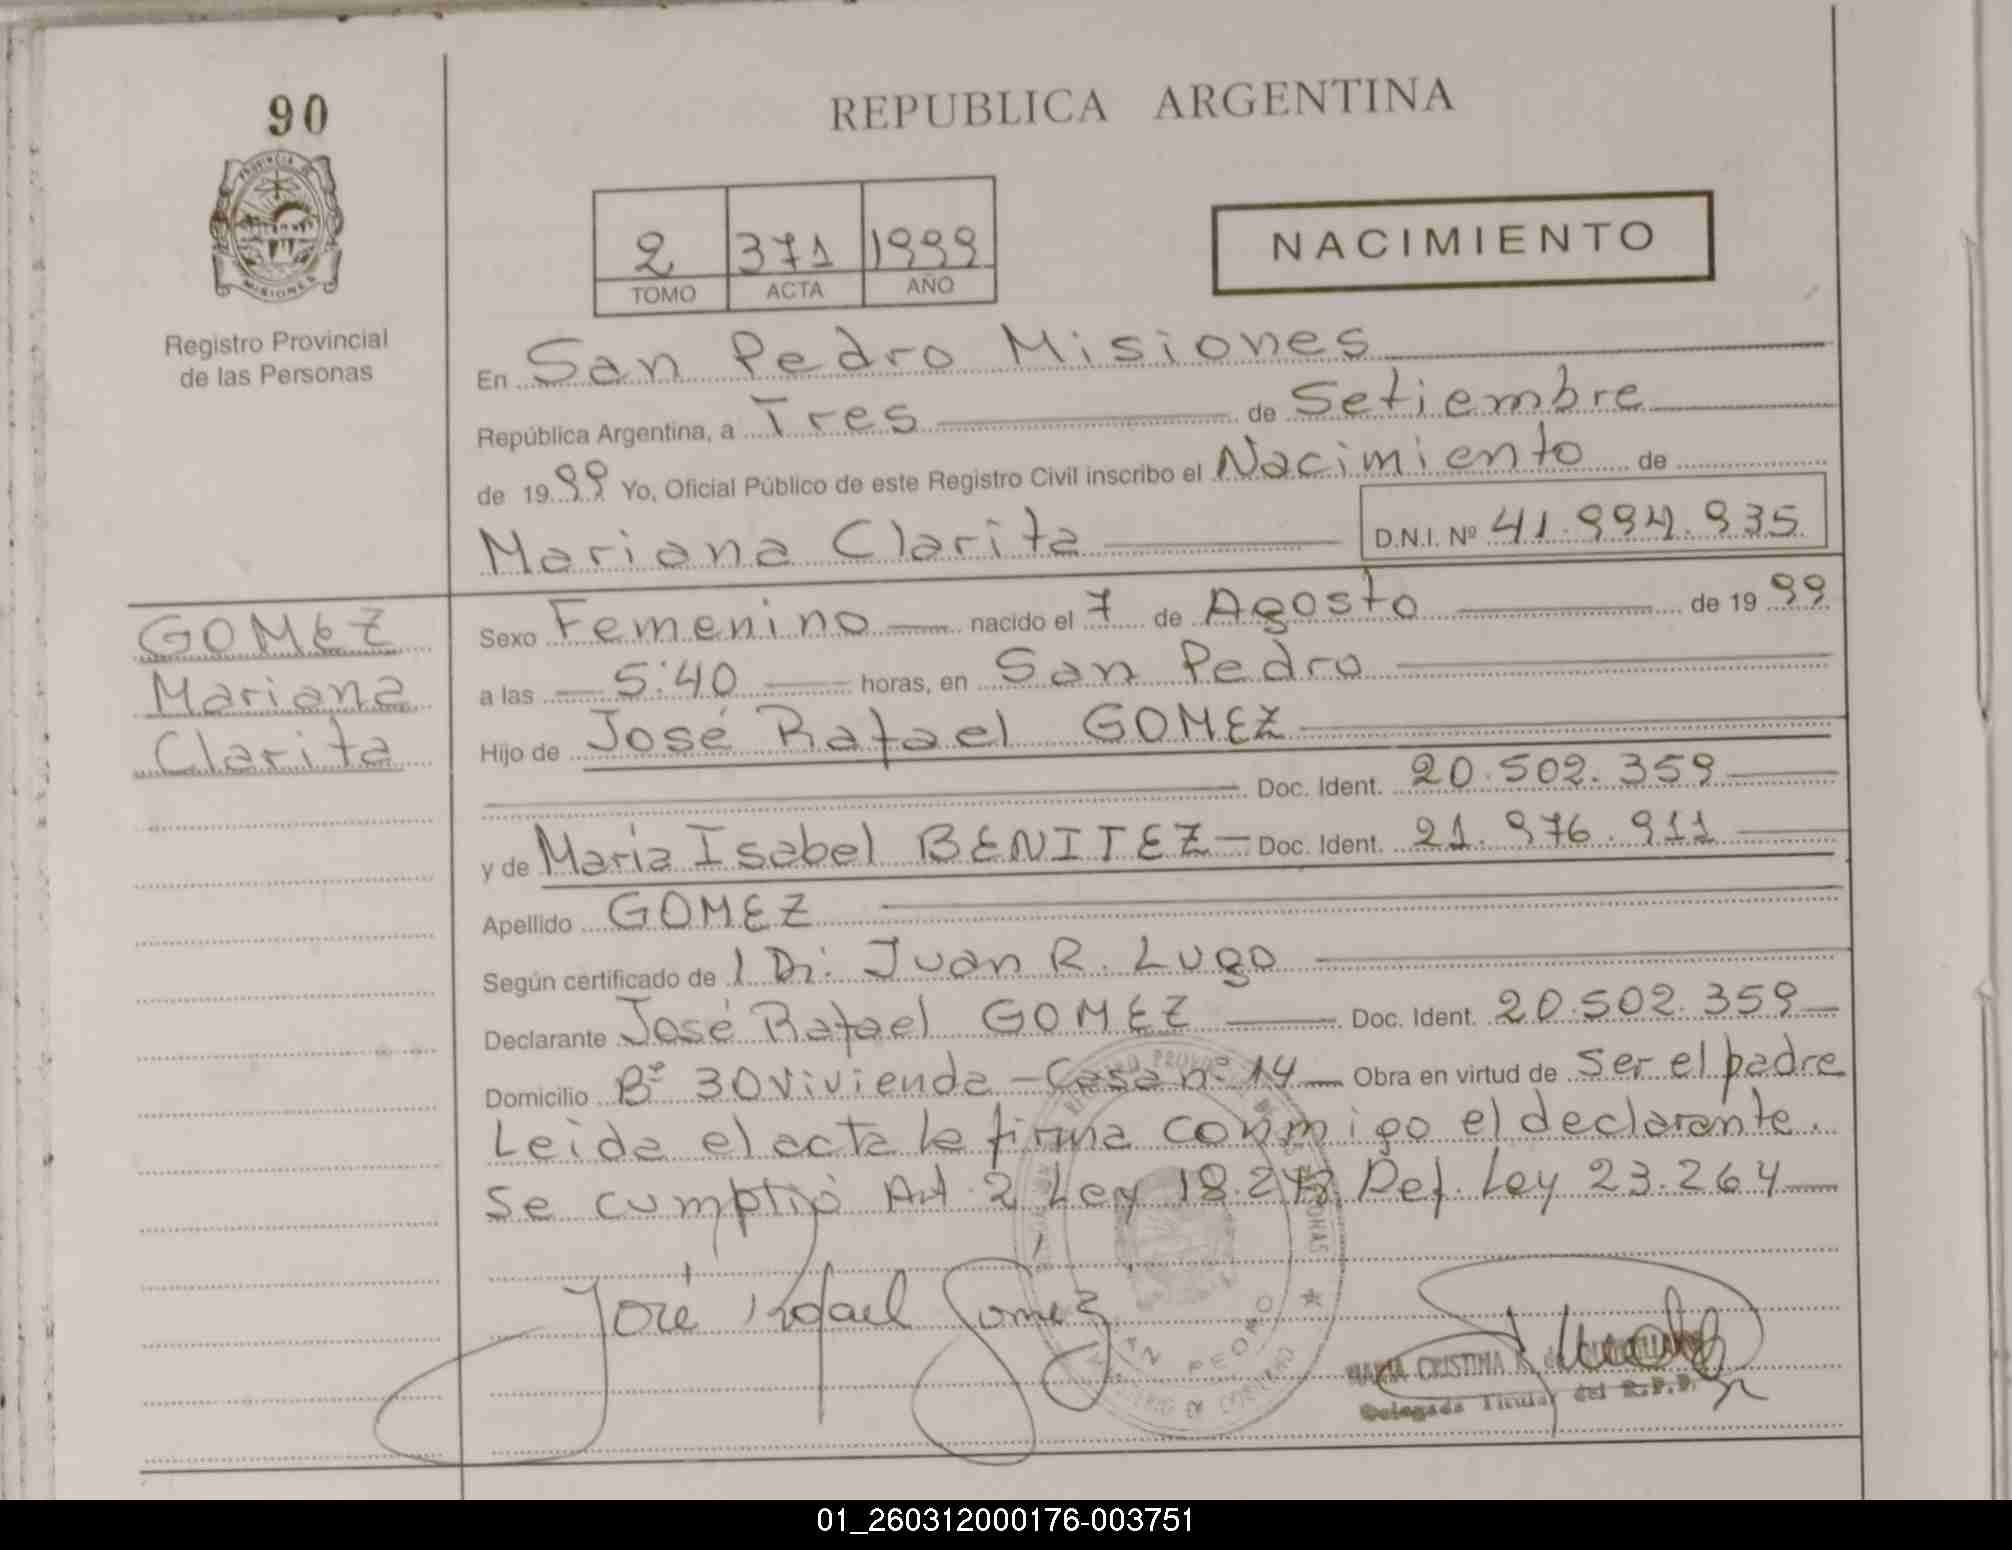 90
REPUBLICA ARGENTINA
PROVINCIA DE
MISIONES
Registro Provincial
de las Personas
2 371 1999
TOMO ACTA AÑO
NACIMIENTO
En San Pedro Misiones
República Argentina, a Tres de Setiembre
de 1999 Yo, Oficial Público de este Registro Civil inscribo el Nacimiento de
Mariana Clarita D.N.I. Nº 41.994.935
GOMEZ
Mariana
Clarita
Sexo Femenino nacido el 7 de Agosto de 1999
a las 5:40 horas, en San Pedro
Hijo de José Rafael GOMEZ
Doc. Ident. 20.502.359
y de Maria Isabel BENITEZ Doc. Ident. 21.976.911
Apellido GOMEZ
Según certificado de 1 Dr. Juan R. Lugo
Declarante José Rafael GOMEZ Doc. Ident. 20.502.359
Domicilio Bº 30 Vivienda - Casa nº 14 Obra en virtud de ser el padre
Leida el acta la firma conmigo el declarante.
Se cumplió Art. 2 Ley 18.248 Def. Ley 23.264
José Rafael Gomez
MARIA CRISTINA R. de
Delegada Titular del R.P.P.
01_260312000176-003751